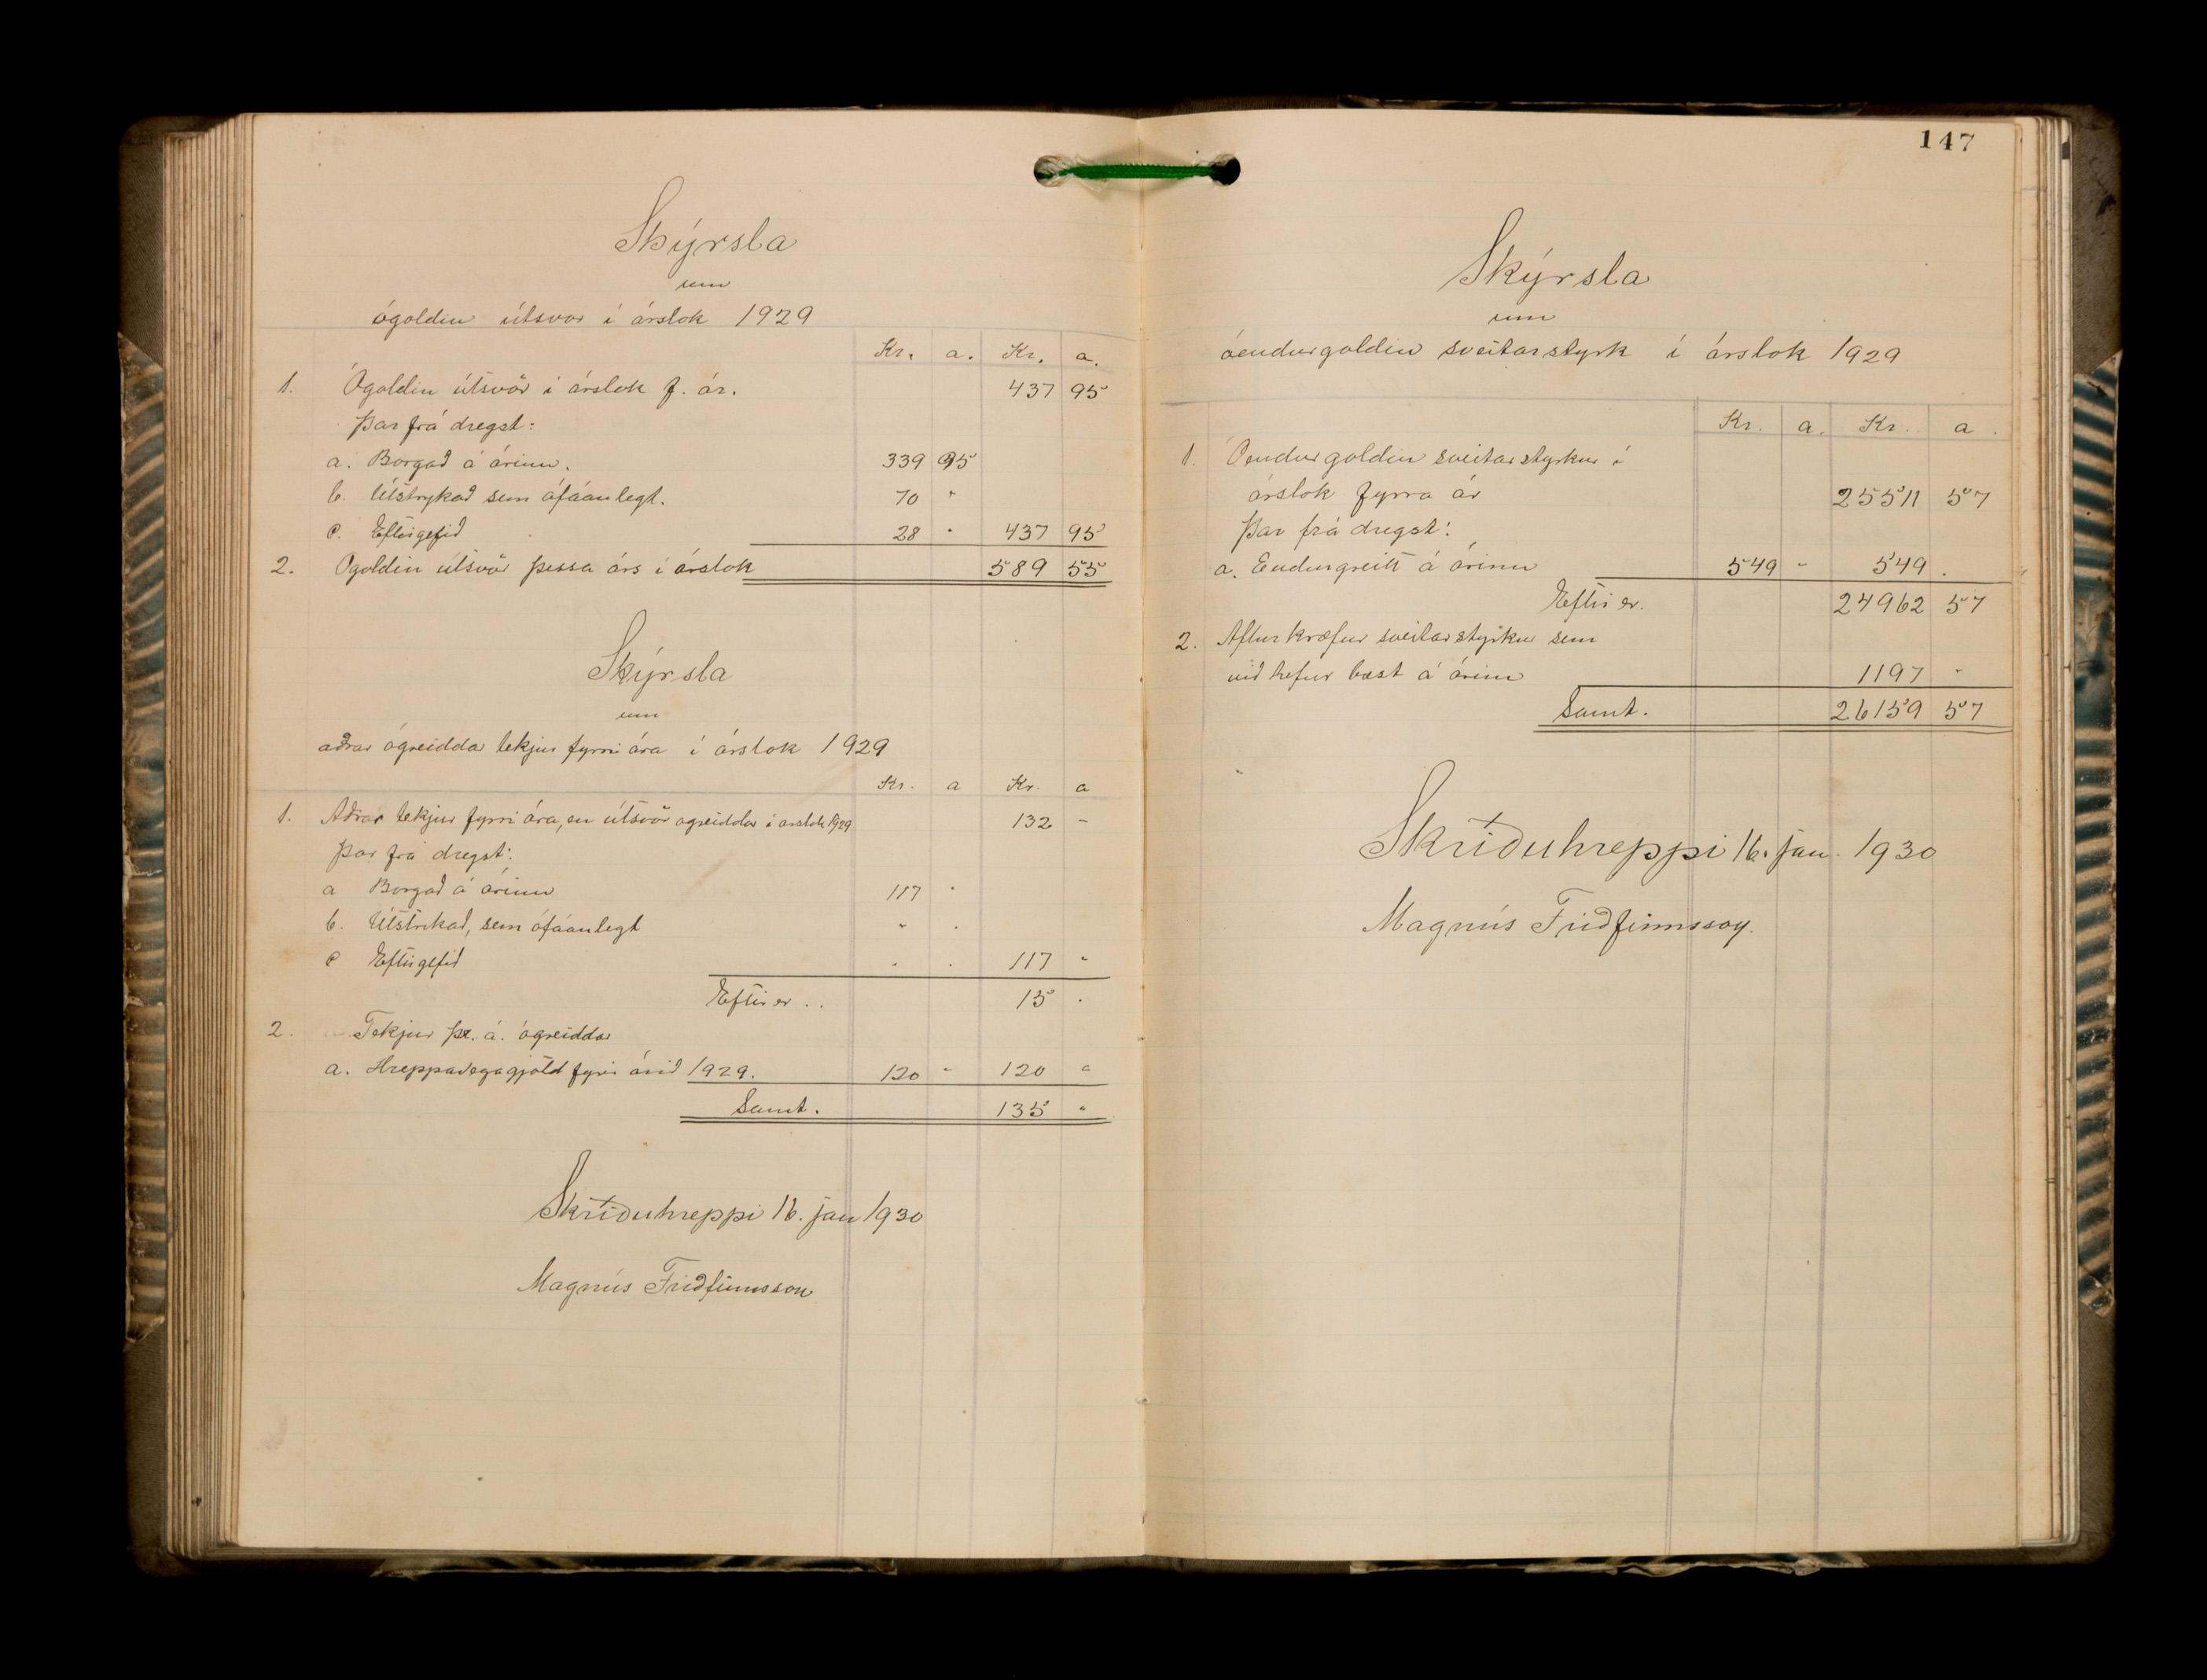 Skýrsla
um
ógoldin útsvör í árslok 1929
Kr. a. Kr. a.
1. Ógoldin útsvör í árslok f. ár. 437 95
Þar frá dregst:
a. Borgað á árinu. 339 95
b. Útstrykað sem ófáanlegt. 70 "
c. Eftirgefið 28 " 437 95
2. Ógoldin útsvör þessa árs í árslok 589 55
Skýrsla
um
aðrar ógreiddar tekjur fyrri ára í árslok 1929
Kr. a Kr. a
1. Aðrar tekjur fyrri ára, en útsvör ógreiddar í árslok 1929 132 -
Þar frá dregst:
a Borgað á árinu 117 "
b. Útstrikað, sem ófáanlegt " "
c Eftirgefið " " 117 "
Eftir er .. 15 "
2. Tekjur þ. á. ógreiddar
a. Hreppavegagjöld fyrir árið 1929. 120 " 120 "
Samt. 135 "
Skriðuhreppi 16. jan 1930
Magnús Friðfinnsson
147
Skýrsla
um
óendurgoldin sveitarstyrk í árslok 1929
Kr. a. Kr. a.
1. Óendurgoldin sveitarstyrkur í
árslok fyrra ár 25511 57
Þar frá dregst:
a. Endurgreitt á árinu 549 - 549 .
Eftir er. 24962 57
2. Afturkræfur sveitarstyrkur sem
við hefur bæst á árinu 1197 -
Samt. 26159 57
Skriðuhreppi 16. jan. 1930
Magnús Friðfinnsson.